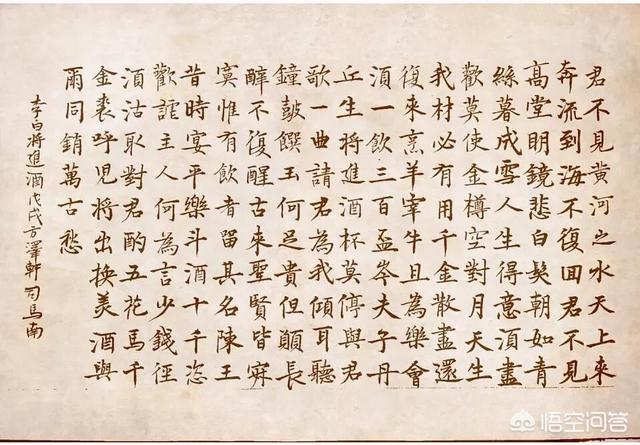 君不見黃河之水天上來
奔流到海不復回君不見
高堂明鏡悲白髮朝如青
絲暮成雪人生得意湏盡
歡莫使金樽空對月天生
我材必有用千金散盡還
復來烹羊宰牛且為樂會
湏一飲三百盃岑夫子丹
丘生將進酒杯莫停與君
歌一曲請君為我傾耳聽
鐘皷饌玉何足貴但願長
醉不復醒古來聖賢皆寂
寞惟有飲者留其名陳王
昔時宴平樂斗酒十千恣
歡謔主人何為言少錢徑
湏沽取對君酌五花馬千
金裘呼児將出換美酒與
雨同銷萬古愁
李白將進酒戊戌方澤軒司馬南
悟空问答